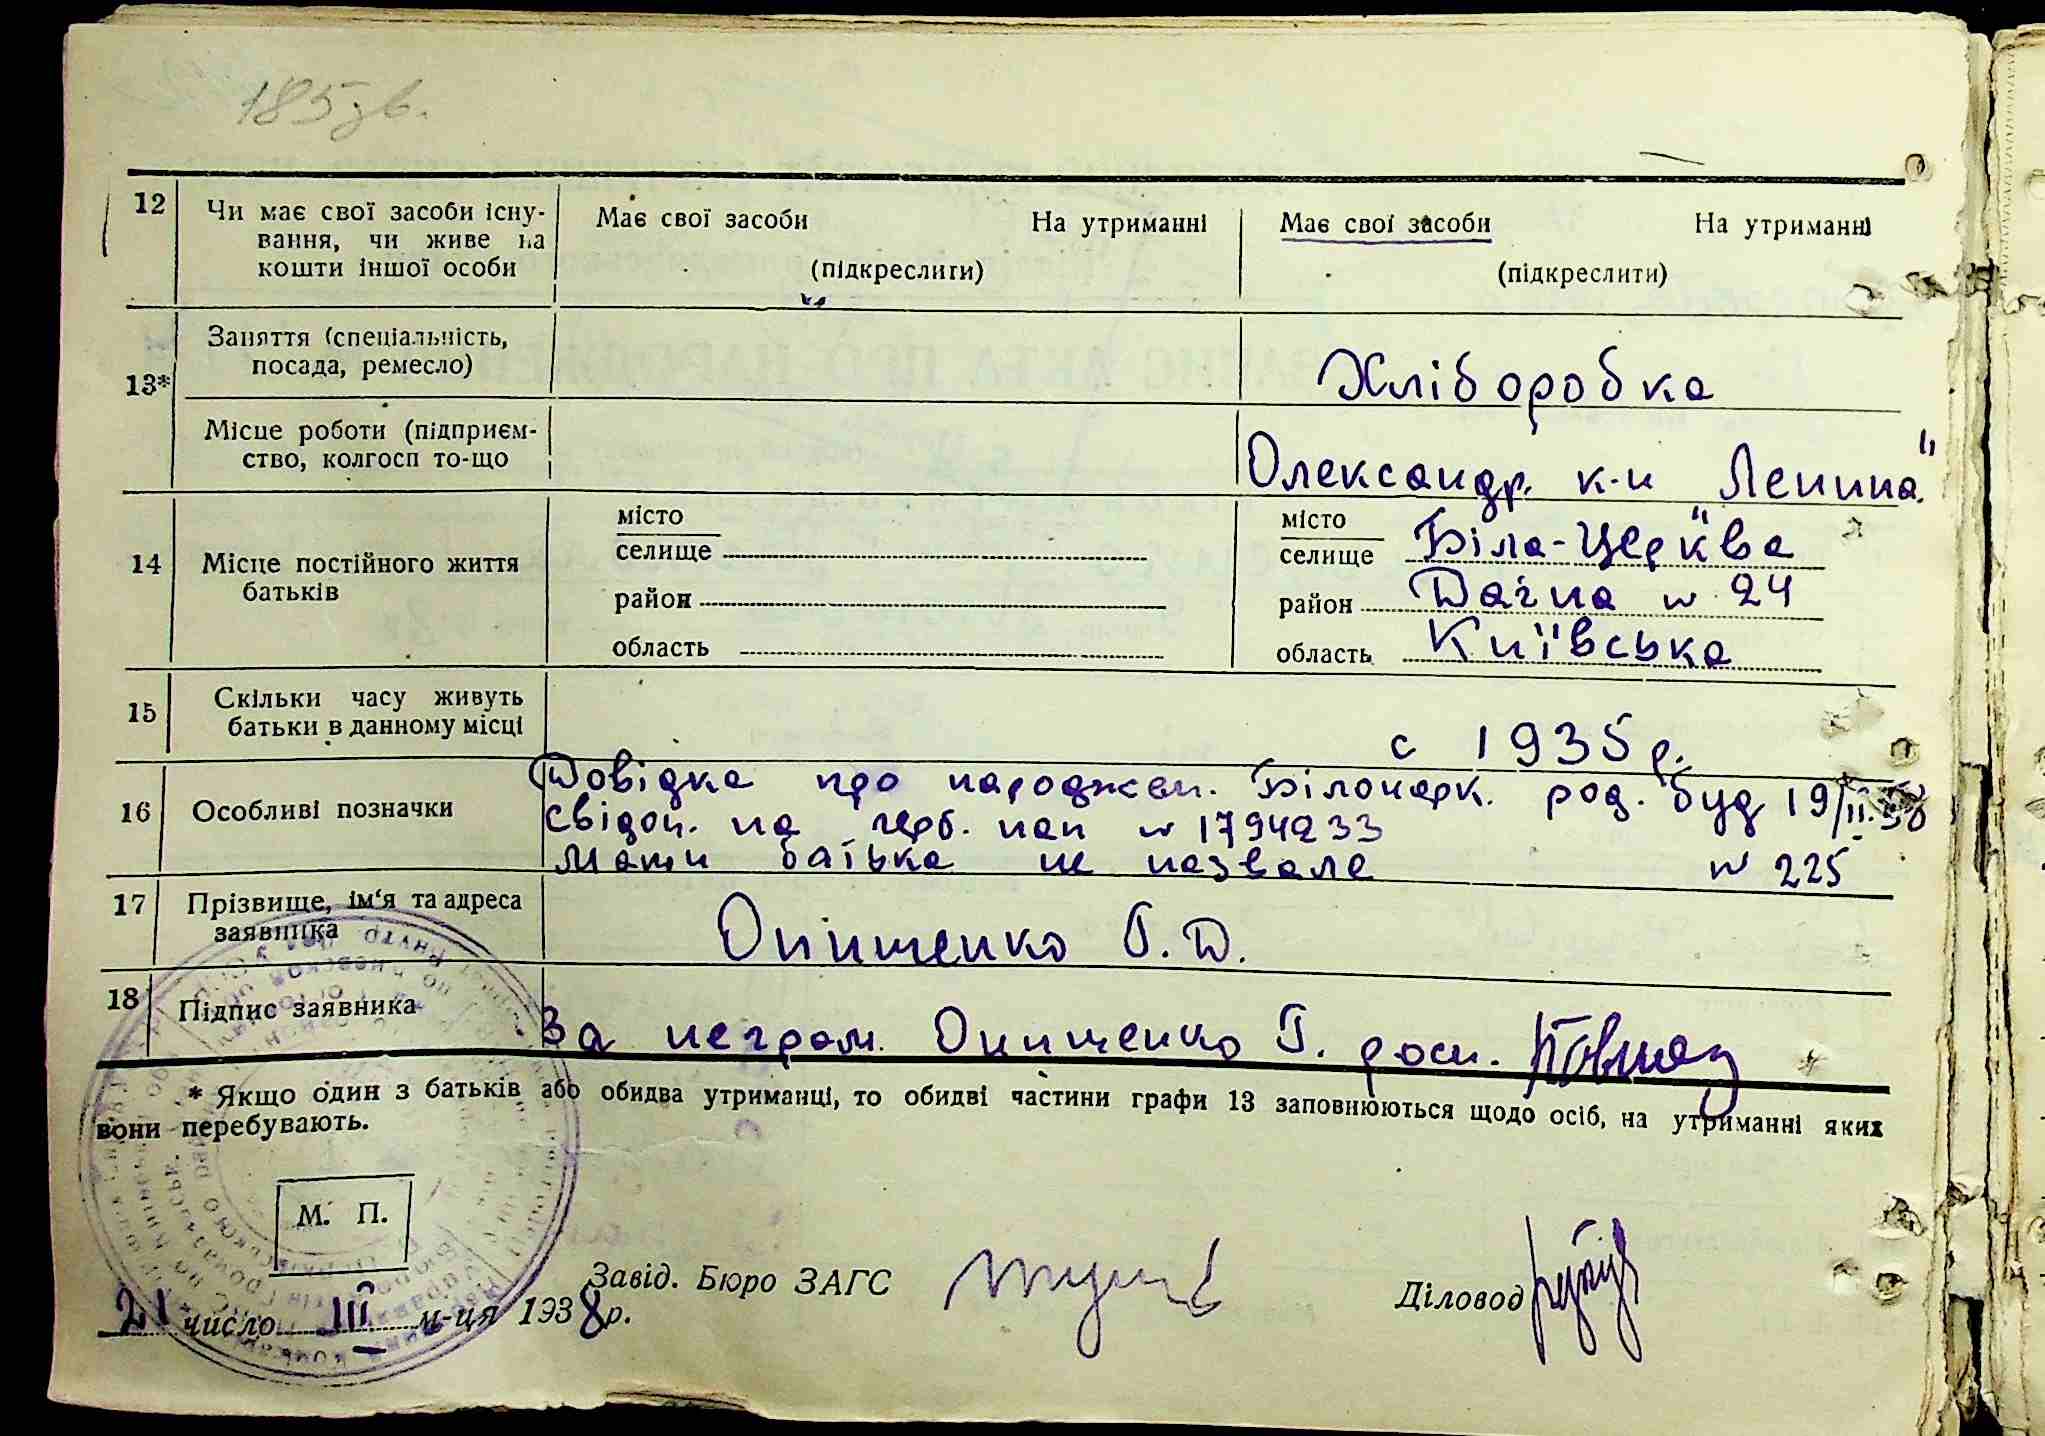 185зв.
12 Чи має свої засоби існу- Має свої засоби На утриманні Має свої засоби На утриманні
вання, чи живе на
кошти іншої особи (підкреслити) (підкреслити)
13* Заняття (спеціальність,
посада, ремесло) Хліборобка
Місце роботи (підприєм-
ство, колгосп то-що Олександр. к-п "Ленина"
14 Місце постійного життя
батьків
місто
селище
район
область
місто
селище Біла-Церква
район Дачна № 24
область Київська
15 Скільки часу живуть
батьки в данному місці с 1935 р.
16 Особливі позначки Довідка про народжен. Білоцерк. род. буд 19/II.38
свідоц. на герб. пап № 1794233
Мати батька не назвала № 225
17 Прізвище, ім'я та адреса
заявника Онищенко Г. Д.
18 Підпис заявника За неграм. Онищенко Г. росп.
* Якщо один з батьків або обидва утриманці, то обидві частини графи 13 заповнюються щодо осіб, на утриманні яких
вони перебувають.
М. П.
Завід. Бюро ЗАГС Діловод
21 число III м-ця 1938 р.